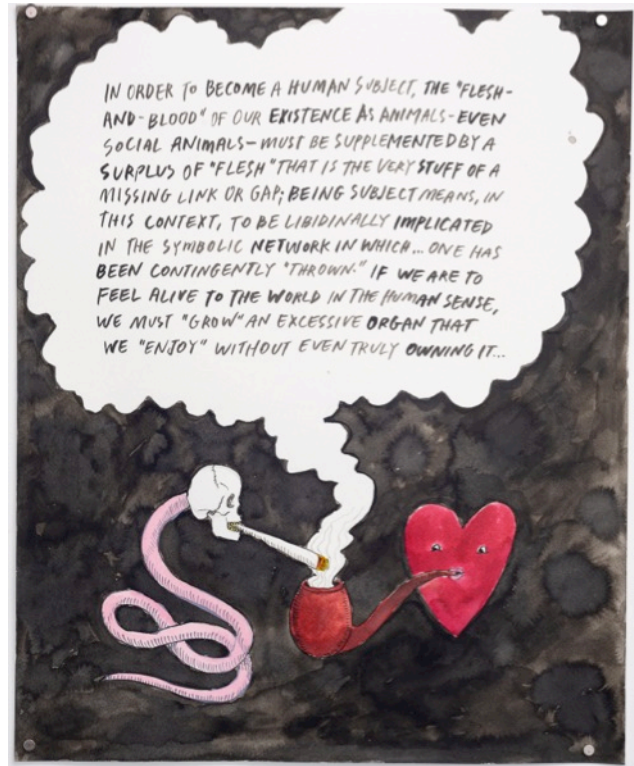 IN ORDER TO BECOME A HUMAN SUBJECT, THE "FLESH-
AND-BLOOD" OF OUR EXISTENCE AS ANIMALS-EVEN
SOCIAL ANIMALS-MUST BE SUPPLEMENTED BY A
SURPLUS OF "FLESH" THAT IS THE VERY STUFF OF A
MISSING LINK OR GAP; BEING SUBJECT MEANS, IN
THIS CONTEXT, TO BE LIBIDINALLY IMPLICATED
IN THE SYMBOLIC NETWORK IN WHICH... ONE HAS
BEEN CONTINGENTLY "THROWN." IF WE ARE TO
FEEL ALIVE TO THE WORLD IN THE HUMAN SENSE,
WE MUST "GROW" AN EXCESSIVE ORGAN THAT
WE "ENJOY" WITHOUT EVEN TRULY OWNING IT...